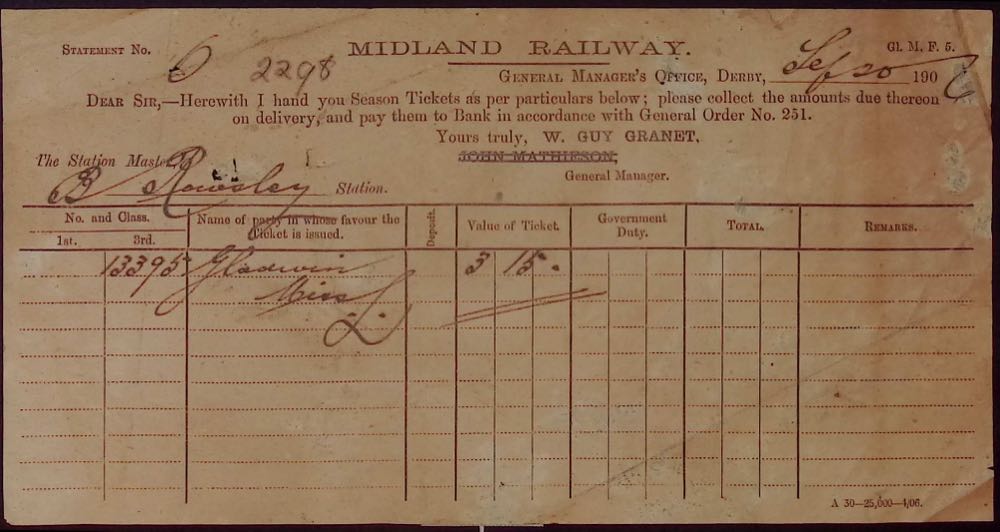 STATEMENT No. 6 2298 MIDLAND RAILWAY. Gl. M. F. 5.
GENERAL MANAGER'S OFFICE, DERBY, Sep 20 190
DEAR SIR,—Herewith I hand you Season Tickets as per particulars below; please collect the amounts due thereon
on delivery, and pay them to Bank in accordance with General Order No. 251.
Yours truly, W. GUY GRANET,
JOHN MATHIESON,
General Manager.
The Station Master,
B Rowsley Station.
No. and Class. 1st. 3rd. Name of party in whose favour the Ticket is issued. Deposit. Value of Ticket. Government Duty. TOTAL. REMARKS.
13395 Gladwin 3 15 .
Miss L
A 30—25,000—4/06.